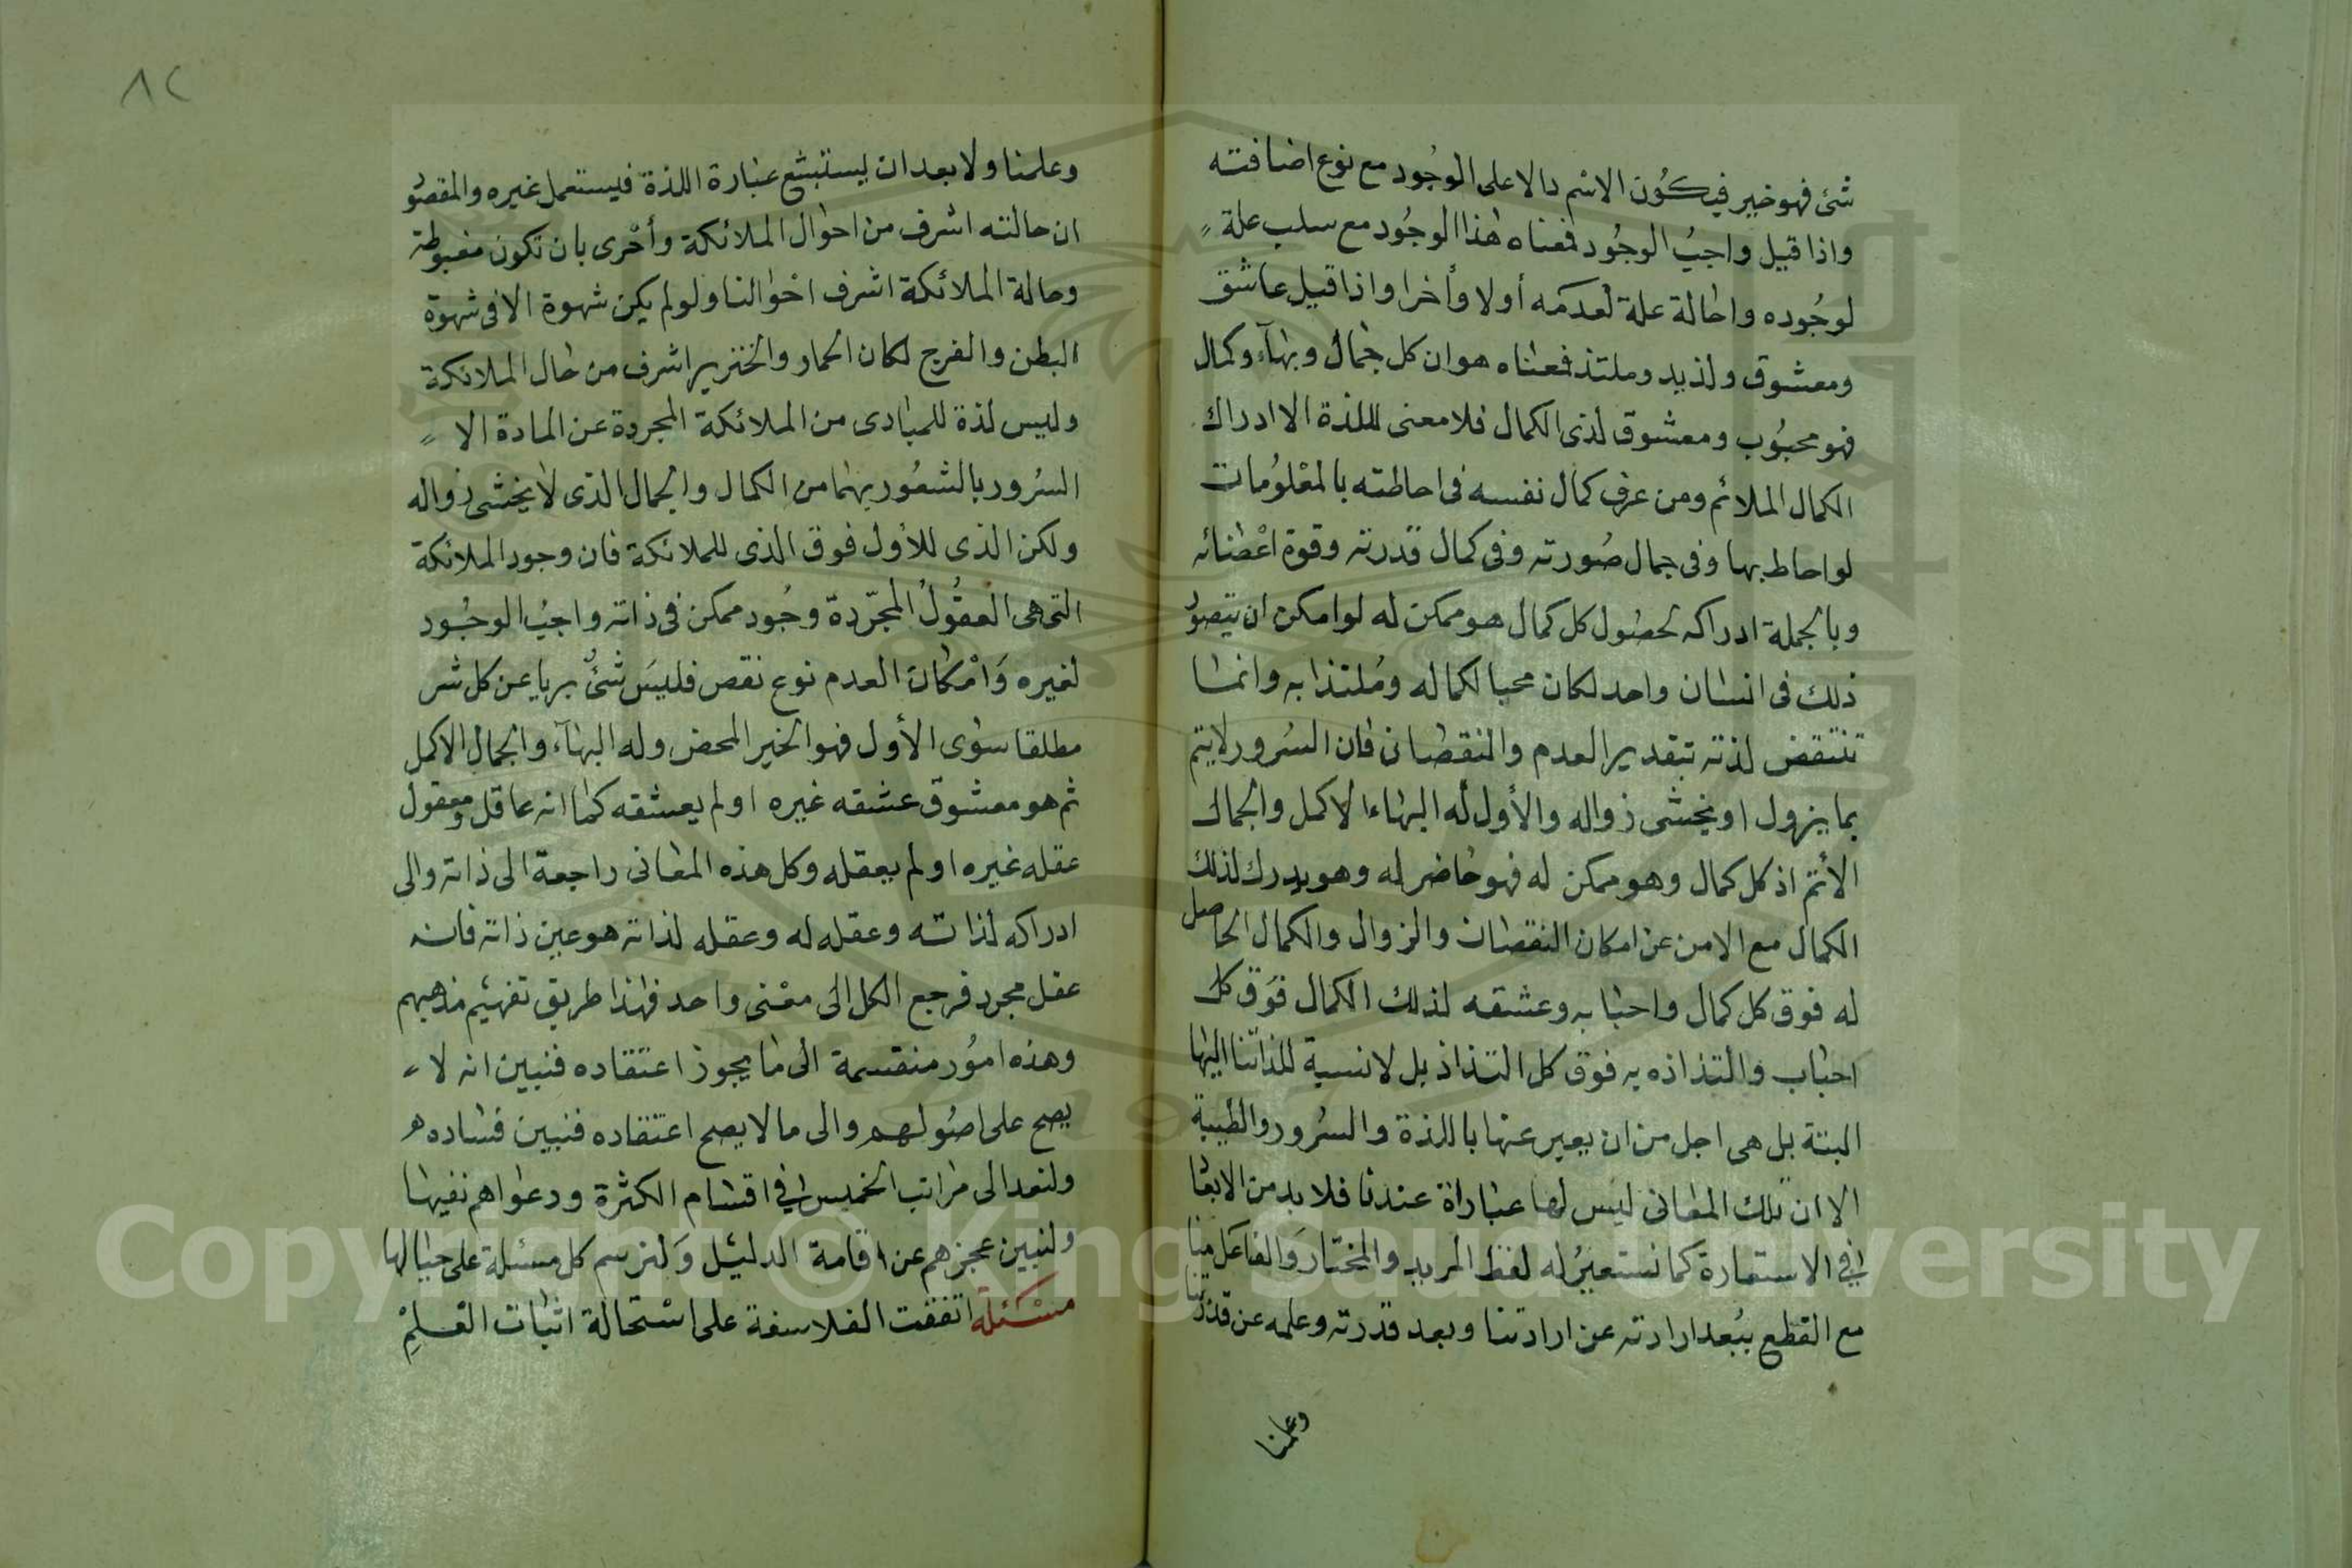 شئ فهو خير فيكُون الاسم دالا على الوجُود مع نوع اضافته
واذا قيل واجبُ الوجُود فمعناه هذا الوجُود مع سلب علة
لوجُوده واحالة علة لعدمه أولا وأخرا واذا قيل عاشق
ومعشوق ولذيد وملتذ فمعناه هو ان كل جمال وبهآء وكمال
فهو محبُوب ومعشوق لذى الكمال فلا معنى لللذة الا ادراك
الكمال الملائم ومن عرف كمال نفسه فى احاطته بالمعْلُومات
لو احاط بها وفى جمال صُورته وفى كمال قدرته وقوة اعْضائه
وبالجملة ادراكه لحصُول كل كمال هو ممكن له لو امكن ان يتصوُر
ذلك فى انسان واحد لكان محبا لكماله ومُلتذا به وانما
تنتقض لذته بتقدير العدم والنقصان فان السُرور لايتم
بما يزول او يخشى زواله والأول له البهاء الاكمل والجمال
الأتم اذ كل كمال وهو ممكن له فهو حاضر له وهو يدرك لذلك
الكمال مع الامن عن امكان النقصان والزوال والكمال الحاصل
له فوق كل كمال واحبابه وعشقه لذلك الكمال فوق كل
احباب والتذاذه به فوق كل التذاذ بل لانسبة للذاتنا اليها
البتة بل هى اجل من ان يعبر عنها باللذة والسُرور والطيبة
الا ان تلك المعانى ليس لها عباراة عندنا فلا بد من الابعا
فى الاستعارة كما نستعيرُ له لفظ المريد والمختار والفاعل منا
مع القطع ببُعد ارادته عن ارادتنا وبعد قدرته وعلمه عن قدرتنا
وعلمنا
٨٢
وعلمنا ولا بعد ان يستبشع عبارة اللذة فيستعمل غيره والمقصُو
ان حالته اشرف من احوال الملائكة وأحْرى بان تكون مغبوطة
وحالة الملائكة اشرف احْوالنا ولو لم يكن شهوة الا فى شهوة
البطن والفرج لكان الحمار والخنزير اشرف من حال الملائكة
وليس لذة للمبادى من الملائكة المجردة عن المادة الا
السُرور بالشعُور بهما من الكمال والجمال الذى لا يخشى زواله
ولكن الذى للأول فوق الذى للملائكة فان وجود الملائكة
التى هى العقُولُ المجرّدة وجُود ممكن فى ذاته واجبُ الوجُود
لغيره وَامْكان العدم نوع نقص فليسَ شئٌ بريا عن كل شر
مطلقا سوى الأول فهو الخير المحض وله البهآء والجمال الاكمل
ثم هو معشوق عشقه غيره او لم يعشقه كما انه عاقل ومعقول
عقله غيره او لم يعقله وكل هذه المعانى راجعة الى ذاته والى
ادراكه لذاته وعقله له وعقله لذاته هو عين ذاته فانه
عقل مجرد فرجع الكل الى معْنى واحد فهذا طريق تفهيم مذهبهم
وهذه امُور منقسمة الى ما يجوز اعتقاده فنبين انه لا
يصح على اصُولهم والى ما لا يصح اعتقاده فنبين فساده
ولنعد الى مراتب الخميس فى اقسام الكثرة ودعواهم نفيها
ولنبين عجزهم عن اقامة الدليل وَلنرسم كل مسئلة على حيالها
مسْئلة اتفقت الفلاسفة على استحالة اثبات العلمِ
Copyright © King Saud University